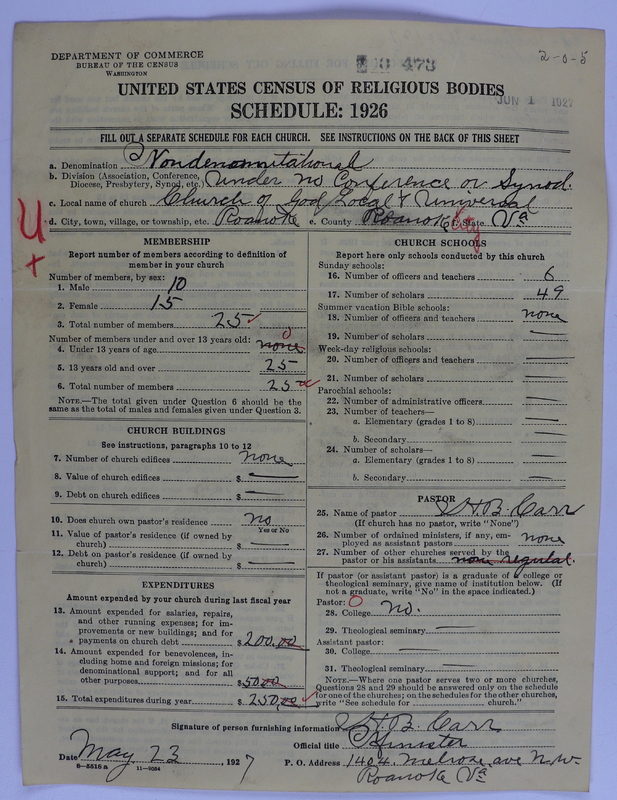 DEPARTMENT OF COMMERCE
BUREAU OF THE CENSUS
WASHINGTON
8 473
2-0-5
UNITED STATES CENSUS OF RELIGIOUS BODIES
JUN 1 1927
SCHEDULE: 1926
FILL OUT A SEPARATE SCHEDULE FOR EACH CHURCH. SEE INSTRUCTIONS ON THE BACK OF THIS SHEET
a. Denomination Nondenominational
b. Division (Association, Conference, Diocese, Presbytery, Synod, etc.) Under no Conference or Synod.
c. Local name of church Church of God Local & Universal
d. City, town, village, or township, etc. Roanoke e. County Roanoke City f. State Va
U
+
MEMBERSHIP
Report number of members according to definition of
member in your church
Number of members, by sex:
1. Male 10
2. Female 15
3. Total number of members 25
Number of members under and over 13 years old:
4. Under 13 years of age none 0
5. 13 years old and over 25
6. Total number of members 25
NOTE.—The total given under Question 6 should be
same as the total of males and females given under Question 3.
CHURCH BUILDINGS
See instructions, paragraphs 10 to 12
7. Number of church edifices none
8. Value of church edifices $ —
9. Debt on church edifices $ —
10. Does church own pastor's residence no
Yes or No
11. Value of pastor's residence (if owned by
church) $ —
12. Debt on pastor's residence (if owned by
church) $ —
EXPENDITURES
Amount expended by your church during last fiscal year
13. Amount expended for salaries, repairs,
and other running expenses; for im-
provements or new buildings; and for
payments on church debt $200.00
14. Amount expended for benevolences, in-
cluding home and foreign missions; for
denominational support; and for all
other purposes $50.00
15. Total expenditures during year $250.00
CHURCH SCHOOLS
Report here only schools conducted by this church
Sunday schools:
16. Number of officers and teachers 6
17. Number of scholars 49
Summer vacation Bible schools:
18. Number of officers and teachers none
19. Number of scholars —
Week-day religious schools:
20. Number of officers and teachers —
21. Number of scholars —
Parochial schools:
22. Number of administrative officers —
23. Number of teachers—
a. Elementary (grades 1 to 8) —
b. Secondary —
24. Number of scholars—
a. Elementary (grades 1 to 8) —
b. Secondary —
PASTOR
25. Name of pastor H. B. Carr
(If church has no pastor, write "None")
26. Number of ordained ministers, if any, em-
ployed as assistant pastors none
27. Number of other churches served by the
pastor or his assistants none regular.
If pastor (or assistant pastor) is a graduate of college or
theological seminary, give name of institution below. (If
not a graduate, write "No" in the space indicated.)
Pastor: 0
28. College no.
29. Theological seminary —
Assistant pastor:
30. College —
31. Theological seminary —
NOTE.—Where one pastor serves two or more churches,
Questions 28 and 29 should be answered only on the schedule
for one of the churches; on the schedules for the other churches,
write "See schedule for ________ church."
Signature of person furnishing information H. B. Carr
Official title Minister
Date May 23, 1927 P. O. Address 1404 Melrose ave N.W.
8—5516 a 11—9034
Roanoke Va